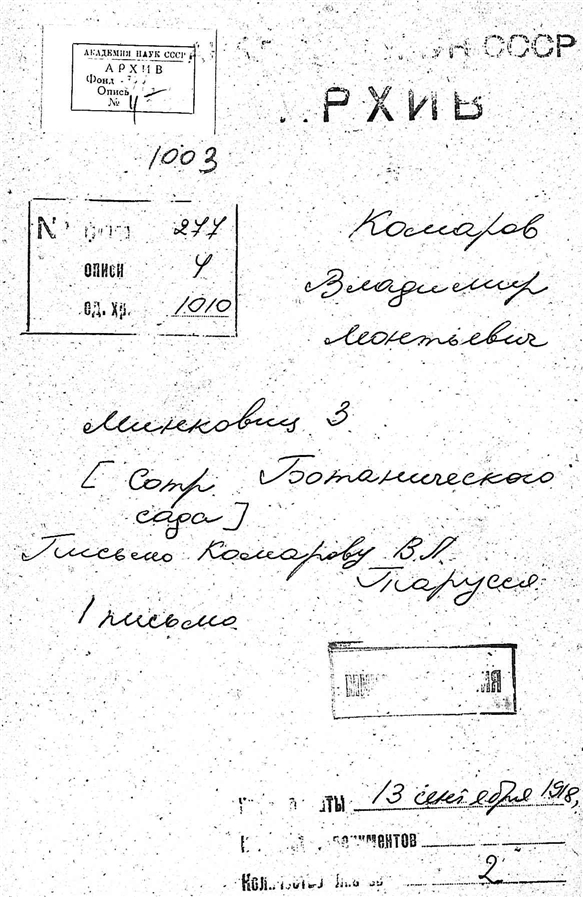 АКАДЕМИЯ НАУК СССР
АРХИВ
Фонд
Опись
№ 4
СССР
АРХИВ
1003
№ 277
описи 4
ед. хр. 1010
Комаров
Владимир
Леонтьевич
Минковиц З
[Сотр Ботанического
сада]
Письмо Комарову В.Л.
Таруссея
1 письмо
13 сентября 1918,
документов
Количество 2